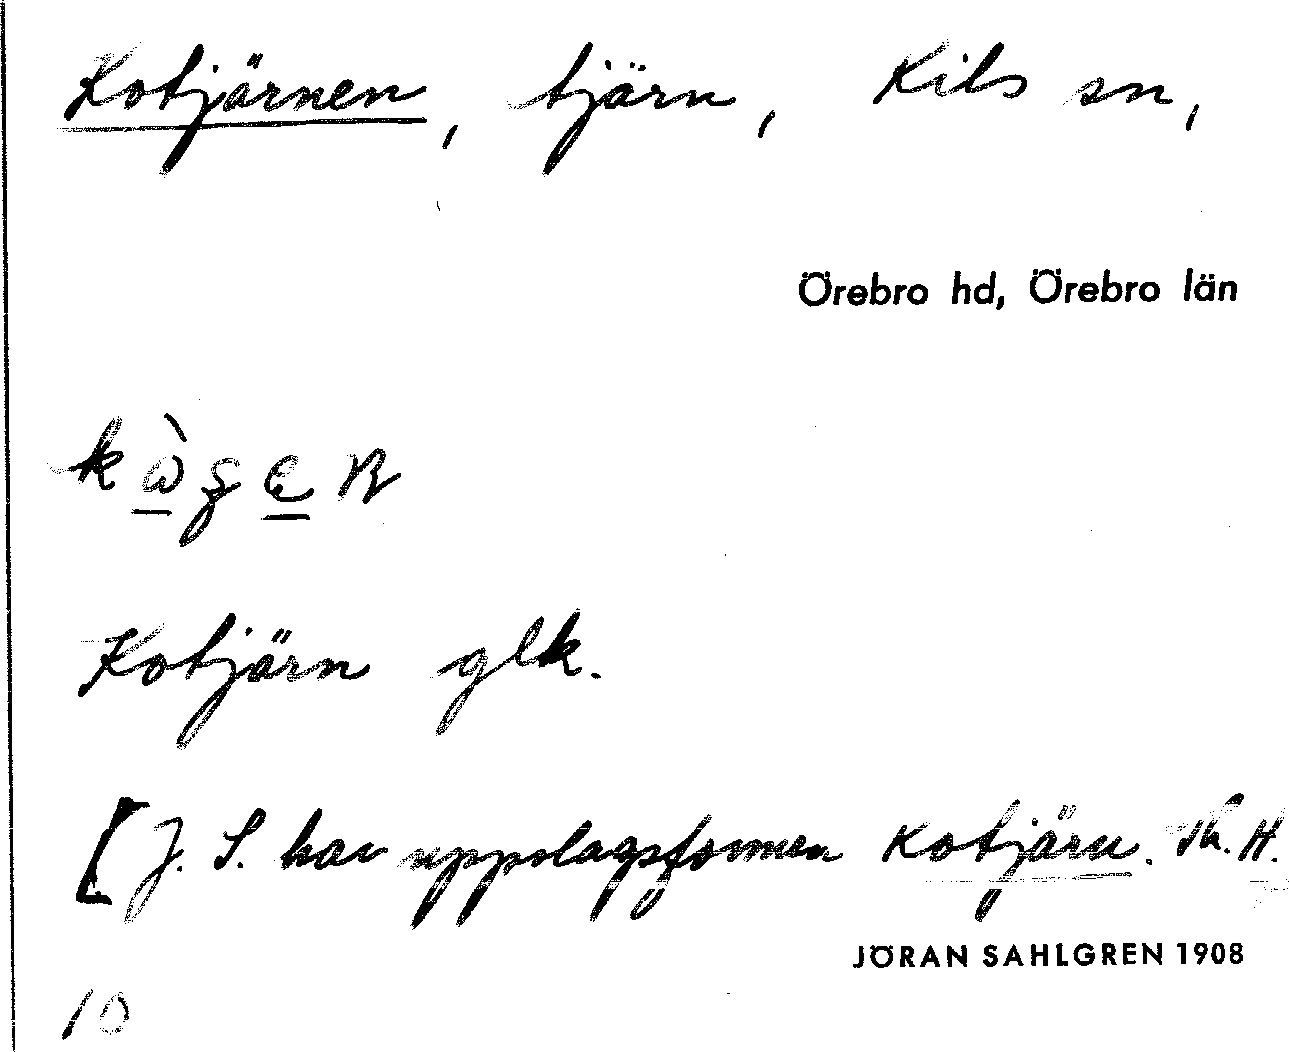 Kotjärnen, tjärn, Kils sn,
Örebro hd, Örebro län
Kotjärn glk.
[J. S. har uppslagsformen Kotjärn. Th. H.
JÖRAN SAHLGREN 1908
10